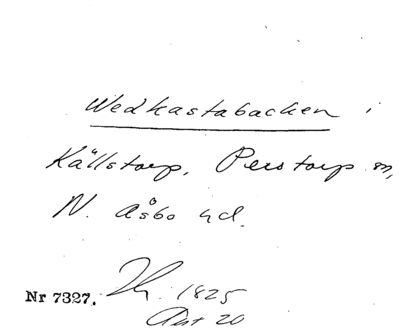 Wedkastabacken i
Källstorp, Perstorp sn,
N. Åsbo hd.
Nr 7327. 1825
20